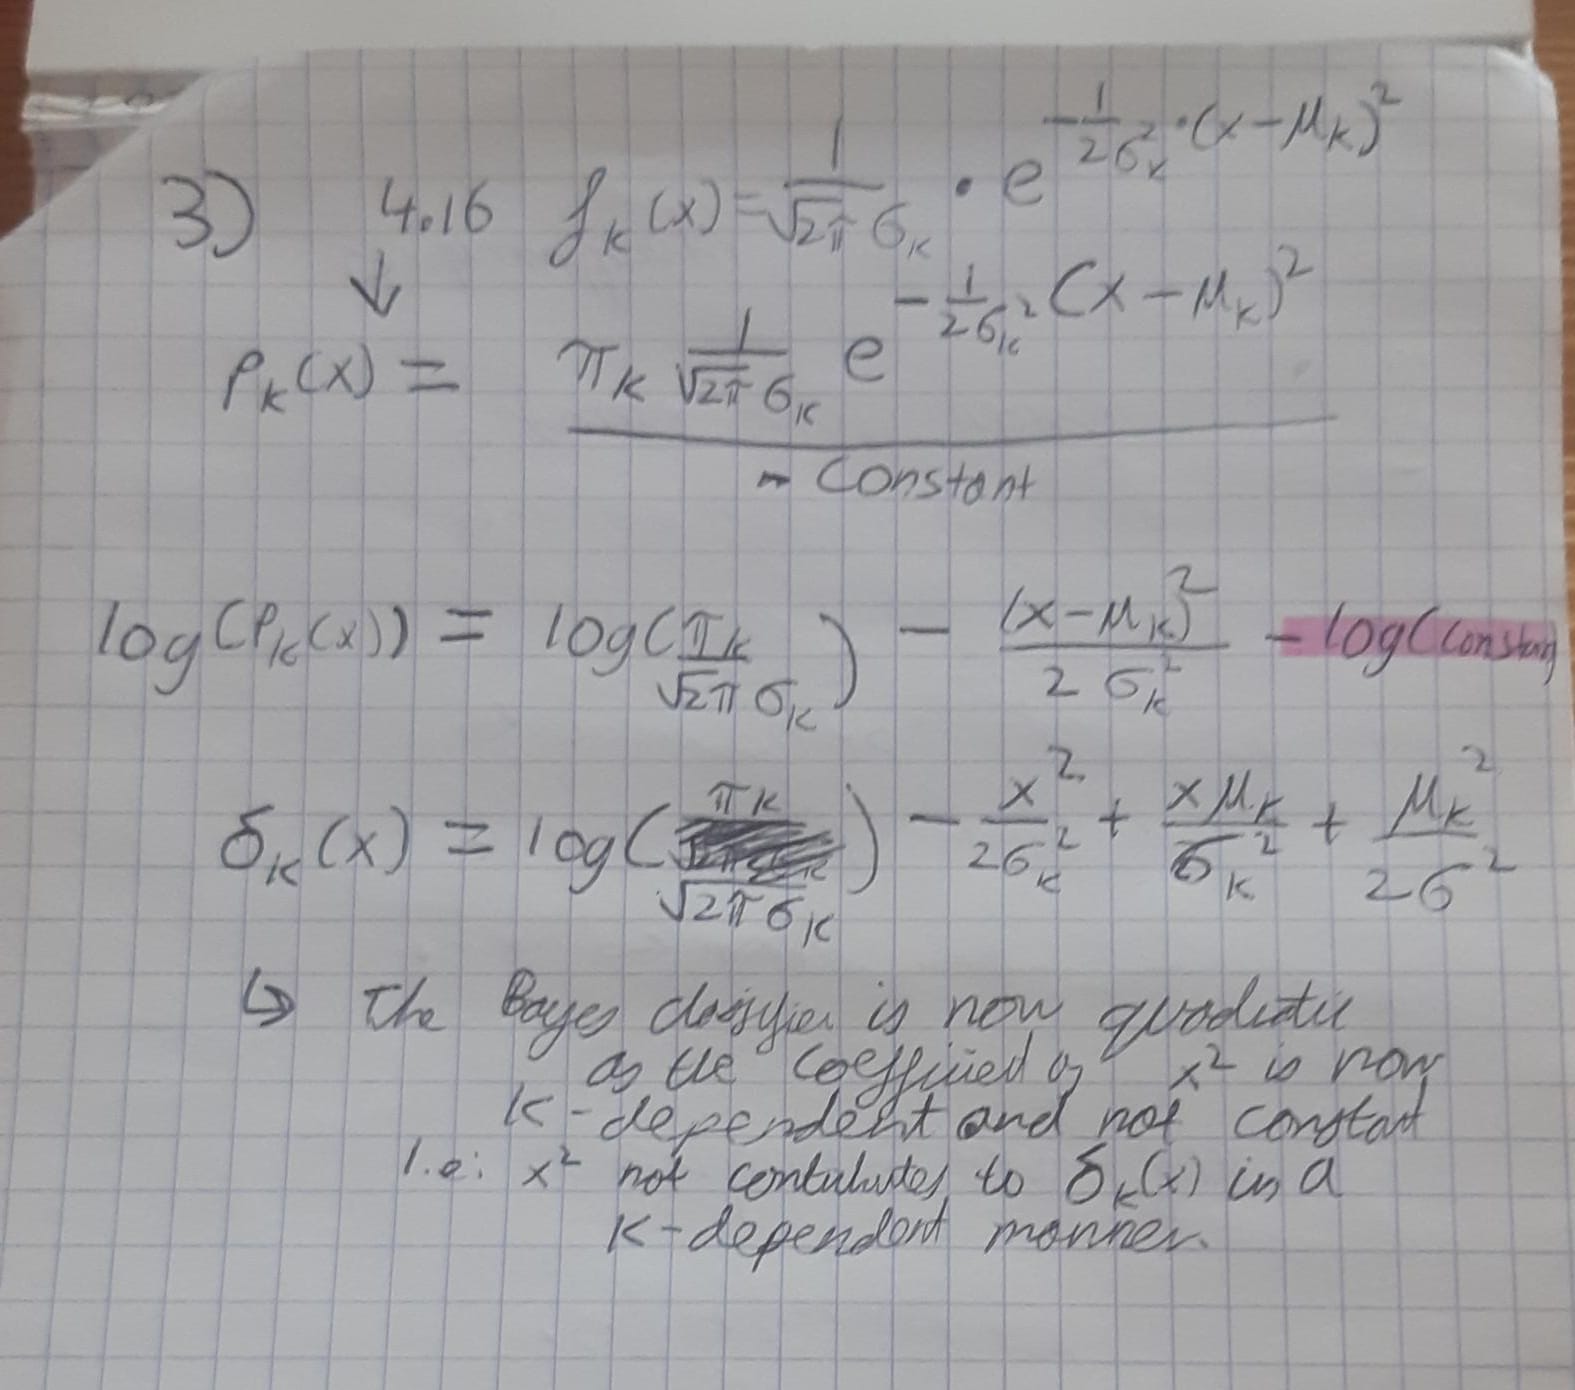 3) 4.16 f_K(x) = 1/(√2π σ_K) · e^(-1/(2σ_K²) · (x-μ_K)²)
↓
p_K(x) = π_K 1/(√2π σ_K) e^(-1/(2σ_K²) (x-μ_K)²)
- Constant
log(p_K(x)) = log(π_K/(√2π σ_K)) - (x-μ_K)²/(2σ_K²) - log(constant
δ_K(x) = log(π_K/(√2π σ_K)) - x²/(2σ_K²) + xμ_K/σ_K² + μ_K²/(2σ²)
↳ The Bayes classifier is now quadratic
as the coefficient of x² is now
K-dependent and not constant
I.e: x² not contributes to δ_K(x) in a
K-dependent manner.